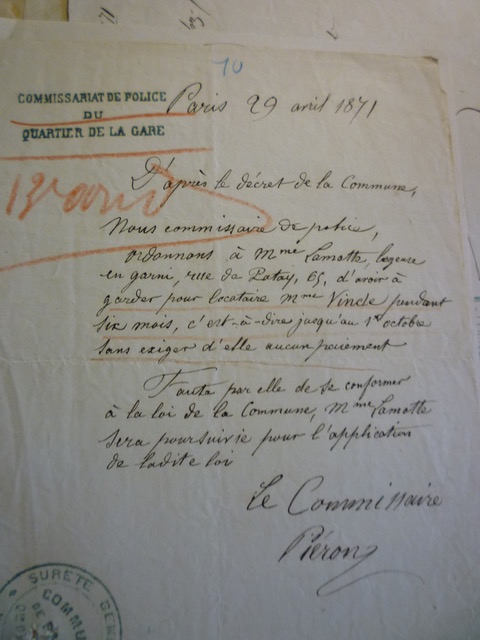 10
COMMISSARIAT DE POLICE
DU
QUARTIER DE LA GARE
Paris 29 avril 1871
D'après le décret de la Commune,
Nous commissaire de police,
ordonnons à Mme Lamotte, logeuse
en garni, rue de Patay, 65, d'avoir à
garder pour locataire Mme Vincle pendant
six mois, c'est-à-dire jusqu'au 1er octobre
sans exiger d'elle aucun paiement
Faute par elle de se conformer
à la loi de la Commune, Mme Lamotte
sera poursuivie pour l'application
de ladite loi
Le Commissaire
Piéron
SURETÉ GEN
COMMU
DE PA